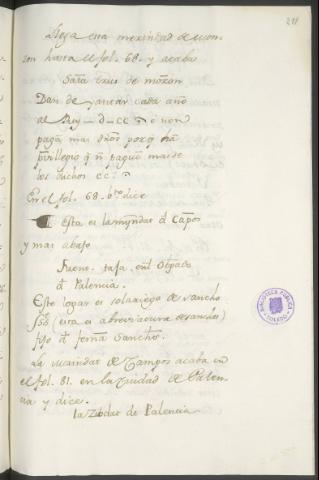 211
Llega esta merindad de mon-
zon hasta el fol. 68. y acaba
Santa Cruz de monzon
Dan de yantar cada año
al Rey d. CC e non
pagan mas dros porq han
privillegio q n paguen mas de
los dichos CC.
En el fol. 68. bto dice
Esta es la mjndat d Capos
y mas abajo
Fuent. tafa. en l Obpado
d Palencia.
Este logar es solariego de sancho
(esta es abreviatura de sanchez)
fijo d ferna Sanchez.
La Merindat de Campos acaba en
el fol. 81. en la Ciudad de Palen-
cia y dice.
la Zibdat de Palencia
BIBLIOTECA PUBLICA
TOLEDO